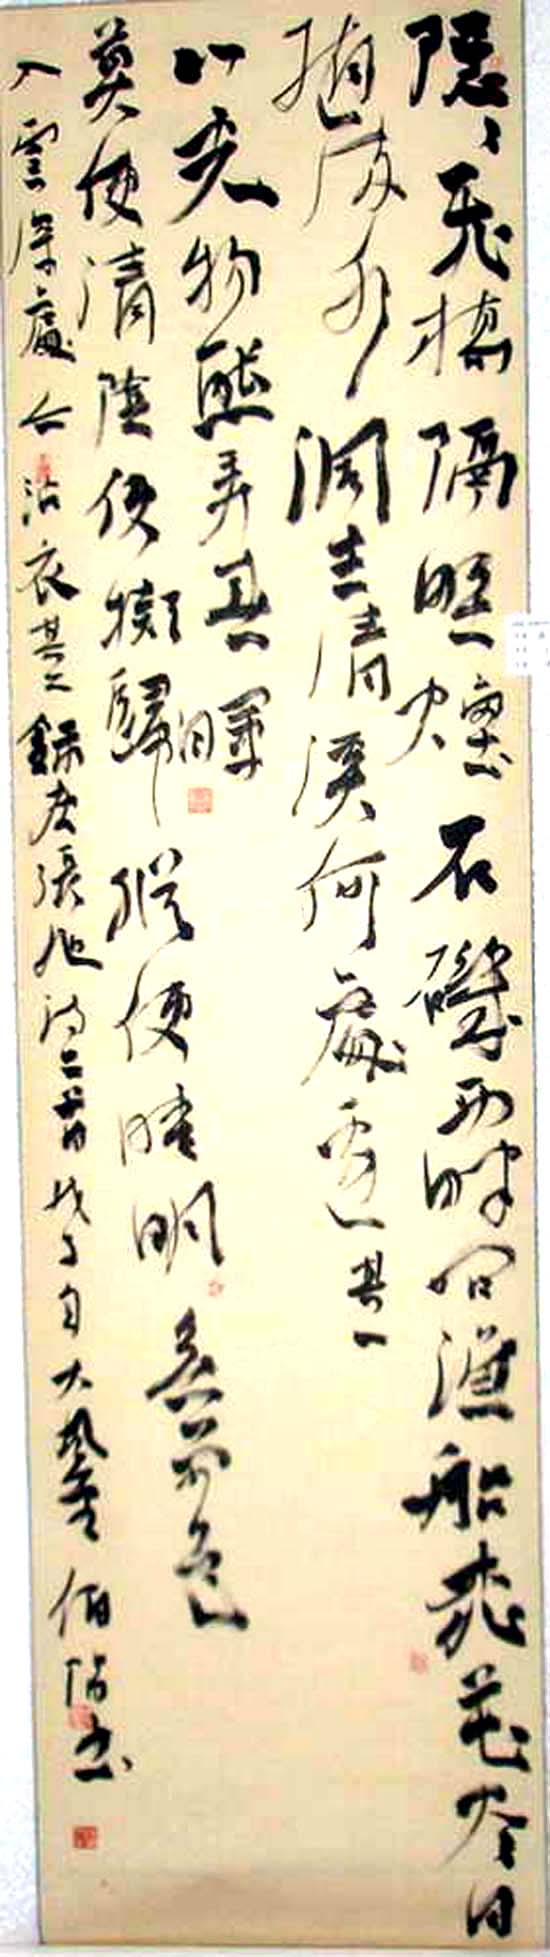 隱〻飛橋隔野煙石磯西畔問漁船桃花尽日
隨流水洞在清溪何處邊其一
山光物態弄春暉
莫便清陰便擬歸縱使晴明無雨色
入雲深處亦沾衣其二錄唐張旭詩二首戊子大風堂伯陽書